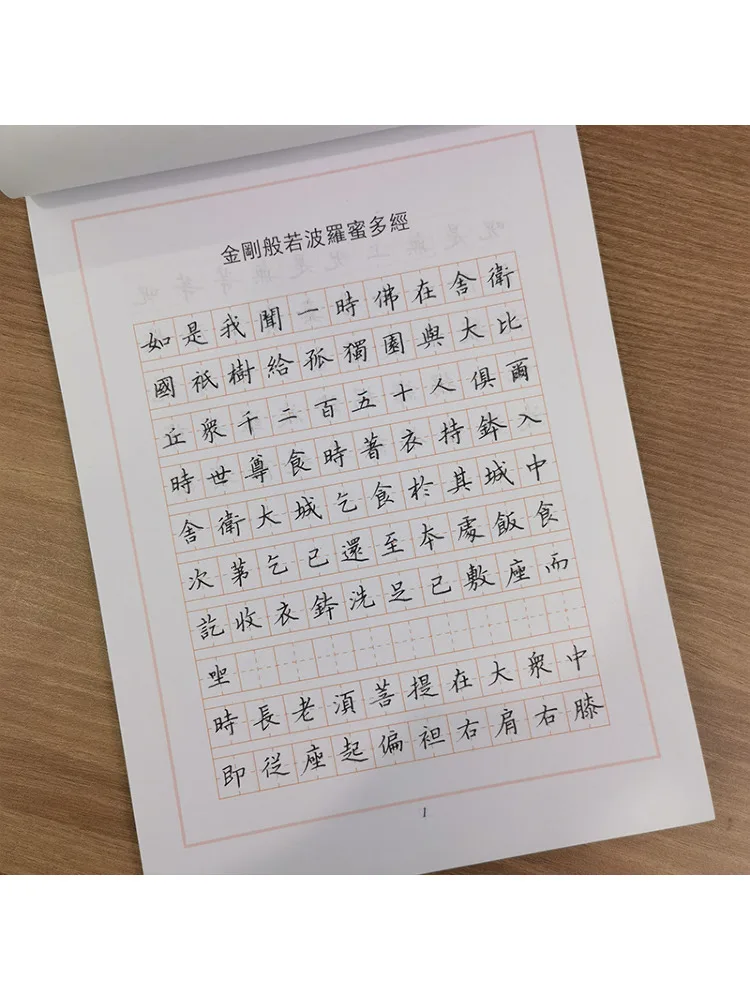 金剛般若波羅蜜多經
如是我聞一時佛在舍衛
國祇樹給孤獨園與大比
丘衆千二百五十人俱爾
時世尊食時著衣持鉢入
舍衛大城乞食於其城中
次第乞已還至本處飯食
訖收衣鉢洗足已敷座而
坐
時長老須菩提在大衆中
即從座起偏袒右肩右膝
1